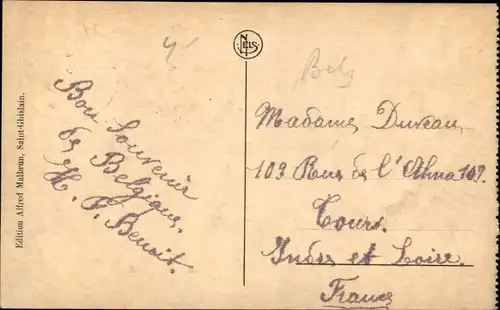 Edition Alfred Malbrun, Saint-Ghislain.
Bon Souvenir
de Belgique.
H. P. Benoit.
NELS
Belg
Madame Duveau
109 Rue de l'Alma 109.
Tours.
Indre et Loire.
France